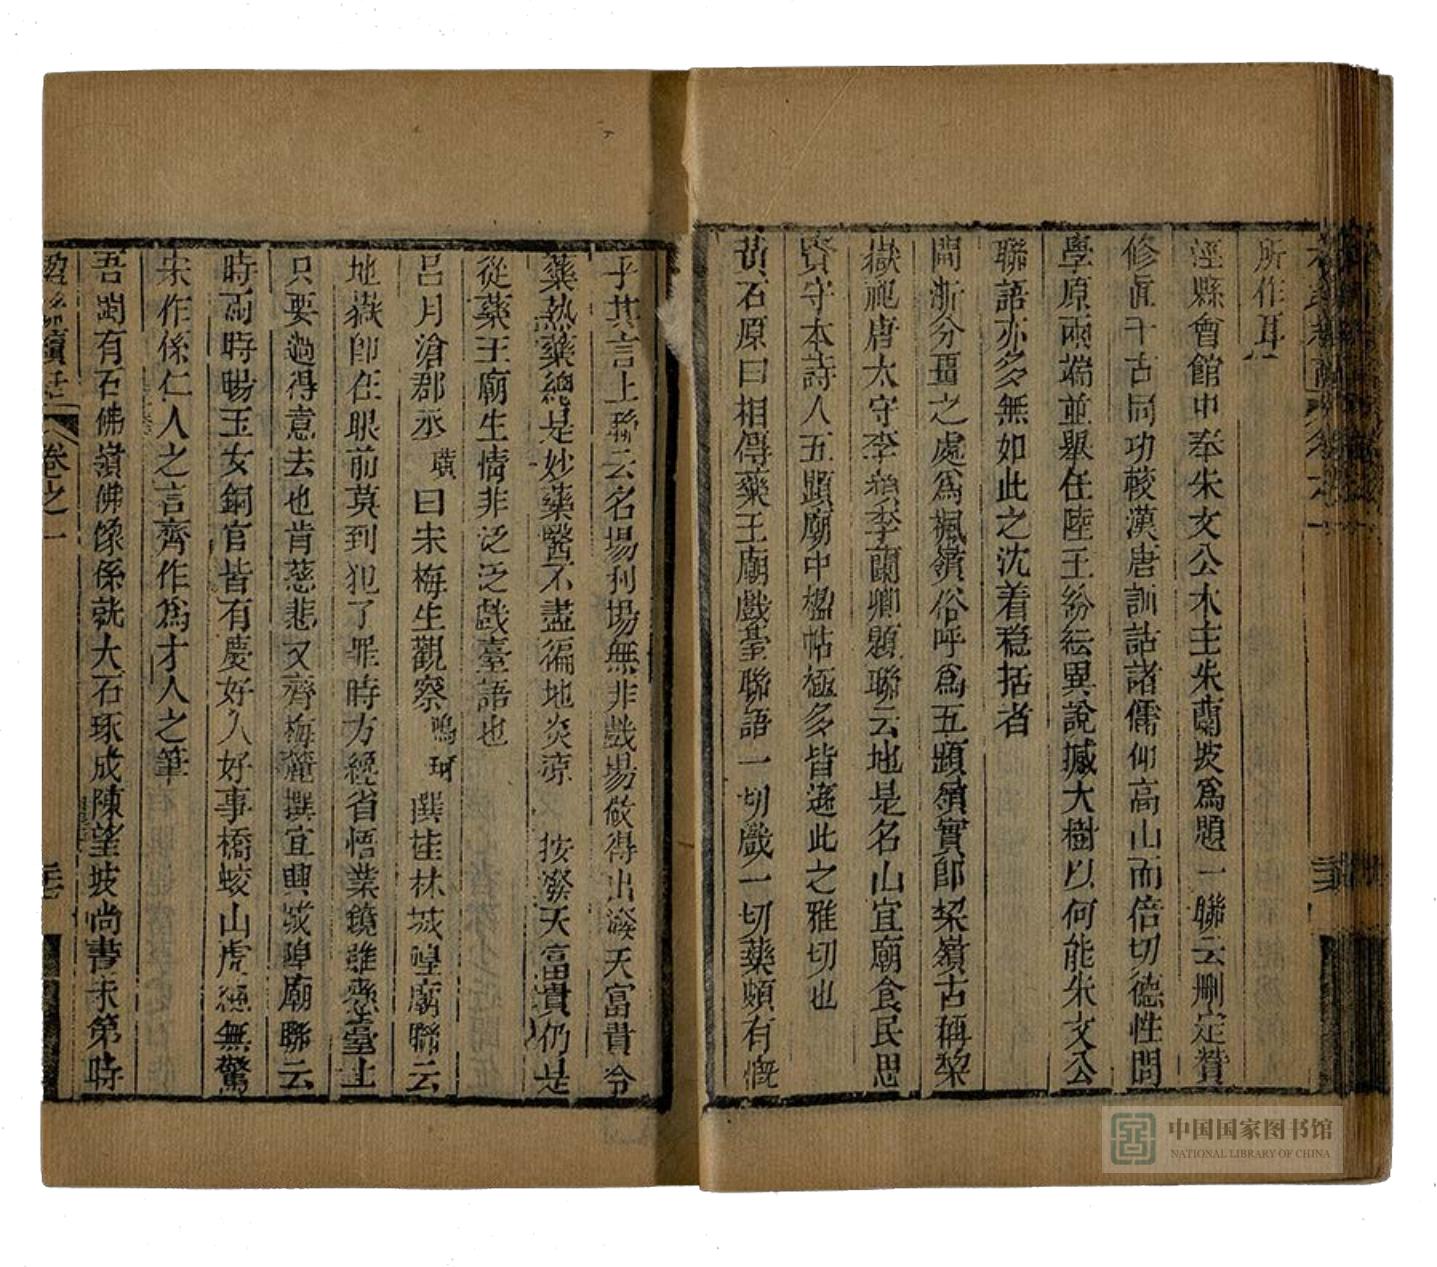 所作耳
涇縣會館中奉朱文公木主朱蘭坡爲題一聯云刪定贊
修眞千古同功較漢唐訓詁諸儒仰高山而倍切德性問
學原兩端並舉任陸王紛紜異說撼大樹以何能朱文公
聯語亦多無如此之沈着穏括者
閩浙分疆之處爲楓嶺俗呼爲五顯嶺實卽棃嶺古稱棃
嶽祀唐太守李頻李蘭卿題聯云地是名山宜廟食民思
賢守本詩人五顯廟中楹帖極多皆遜此之雅切也
黃石原曰相傳藥王廟戲臺聯語一切戲一切藥頗有慨
乎其言上聯云名場利場無非戲場做得出潑天富貴冷
藥熱藥總是妙藥醫不盡徧地炎涼 按潑天富貴仍是
從藥王廟生情非泛泛戲臺語也
呂月滄郡丞璜曰朱梅生觀察鳴珂撰桂林城隍廟聯云
地嶽卽在眼前莫到犯了罪時方纔省悟業鏡雖懸臺上
只要過得意去也肯慈悲又齊梅麓撰宜興城隍廟聯云
時雨時暘玉女銅官皆有慶好人好事橋蛟山虎總無驚
朱作係仁人之言齊作爲才人之筆
吾閩有石佛嶺佛像係就大石琢成陳望坡尚書未第時
續話 卷之一